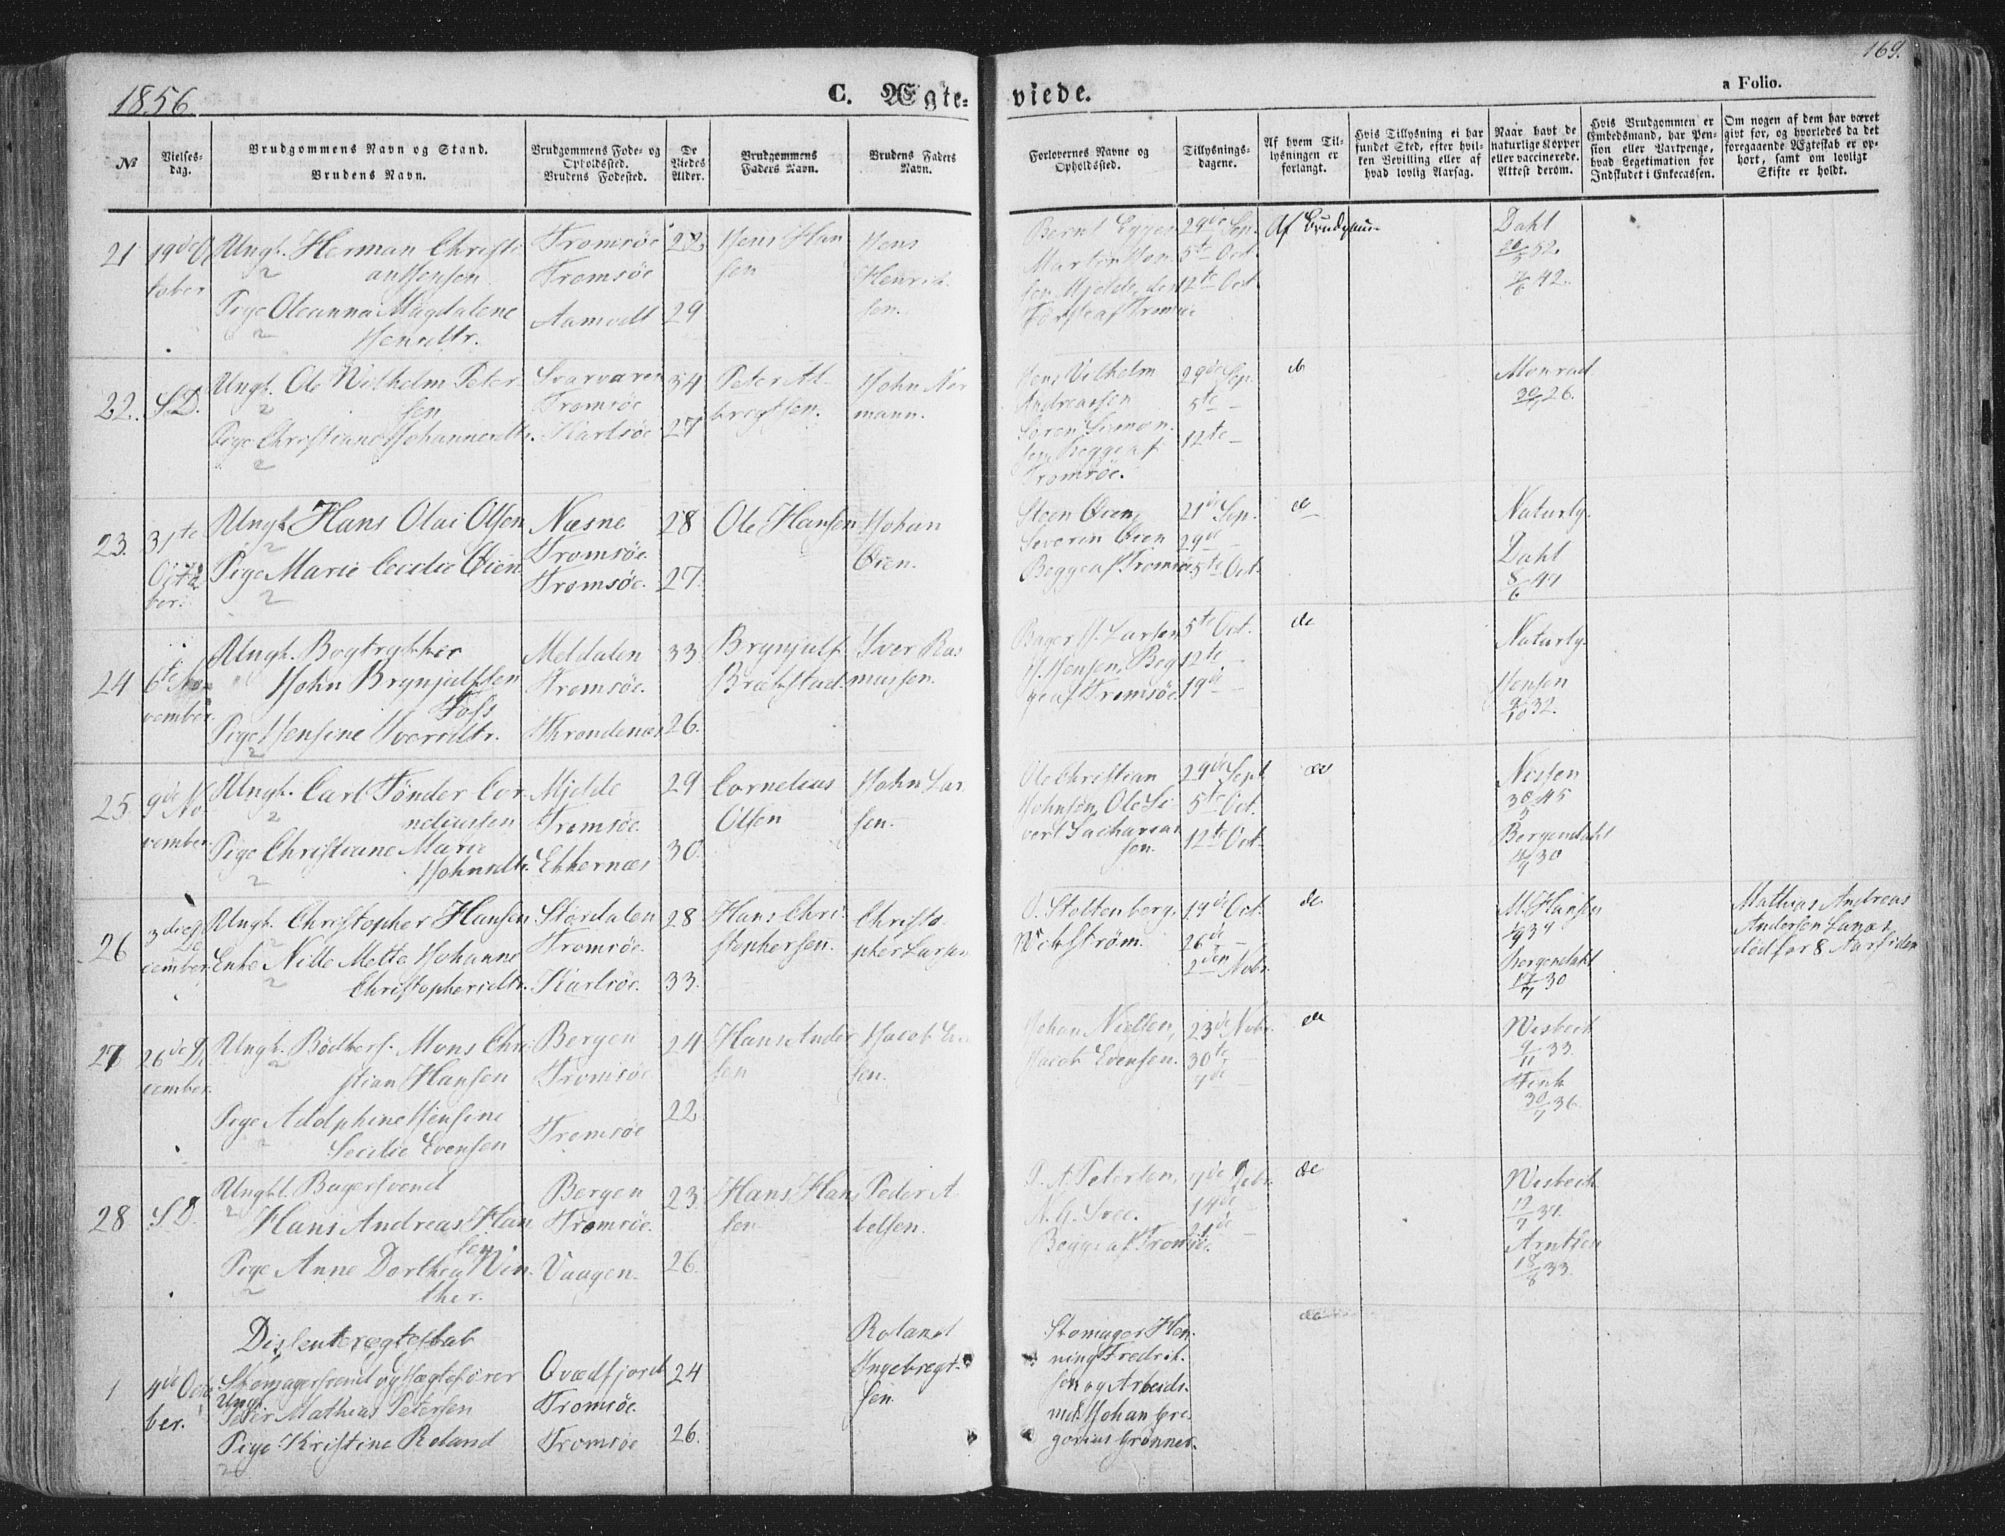 1856.
C. Ægte-
viede.
169.
a Folio.
№
Vielses-
dag.
Brudgommens Navn og Stand.
Brudens Navn.
Brudgommens Føde- og
Opholdssted.
Brudens Fødested.
De
Viedes
Alder.
Brudgommens
Faders Navn.
Brudens Faders
Navn.
Forlovernes Navne og
Opholdssted.
Tillysnings-
dagene.
Af hvem Til-
lysningen er
forlangt.
Hvis Tillysning ei har
fundet Sted, efter hvil-
ken Bevilling eller af
hvad lovlig Aarsag.
Naar havt de
naturlige Kopper
eller vaccinerede.
Attest derom.
Hvis Brudgommen er
Embedsmand, har Pen-
sion eller Vartpenge,
hvad Legetimation for
Indskudet i Enkecassen.
Om nogen af dem har været
givt for, og hvorledes da det
foregaaende Ægteskab er op-
hørt, samt om lovligt
Skifte er holdt.
21
19de O
tober
Ungk. Herman Christi
an Jensen
Pige Oleanna Magdalene
Jensdtr.
Tromsøe
Tromsøe
Aamodt
22
29
Jens Han
sen
Jens
Henrik
sen.
Bernt Eggen
Martin
Mjelde, den
Første af Tromsøe
29de Sep.
5te Oct.
12te Oct.
Af Brudgum
Dahl
26/5 52
7/6 42.
22.
S.D.
Ungk. Ole Wilhelm Peter
sen
Pige Christiane Johannesdtr.
Tromsøe
Karlsøe
34
27
Peter Al-
bregtsen.
John Nor
mann.
Jens Vilhelm
Andreassen
Søren Simon
sen, Begge af
Tromsøe.
29de Sep.
5te —
12te —
do
Monrad
26.
23.
31te
Octo
ber.
Ungk. Hans Olai Olsen
Pige Marie Cecilie Øien.
Næsne
Tromsøe.
Tromsøe.
28
27.
Ole Hansen
Johan
Øien.
Steen Øien,
Severin Øien
Begge af Tromsøe
21de Sep.
29de —
5te Oct.
do
Naturlg.
Dahl
8/6 41
24
6te No
vember
Ungk. Bogtrykker
John Brynjulfsen
Foss
Pige Jensine Iversdtr.
Meldalen
Tromsøe.
Throndenæs
33.
26.
Brynjulf
Brækstad.
Iver Ras
mussen.
Bager H. Larsen
H. Jensen, Beg
ge af Tromsøe.
5te Oct.
12te —
19de —
do
Naturlg.
Jensen
9/10 32.
25.
9de No
vember
Ungk. Carl Tønder Cor
neliussen
Pige Christiane Marie
Johnsdtr.
Mjelde
Tromsøe.
Ekkernæs
29
30.
Cornelius
Olsen
John Lar
sen.
Ole Christian
Johnsen, Ole Si
vert Zacharias
sen.
29de Sept.
5te Oct.
12te Oct.
do
Nissen
30/5 45
Borgendahl
4/9 30
26
3die De
cember
Ungk. Christopher Hansen
Enke Nille Mette Johanne
Christophersdtr.
Størdalen
Tromsøe.
Karlsøe.
28
33.
Hans Chri-
stophersen.
Christo-
pher Larsen
O. Stoltenberg.
Wikstrøm.
19de Oct.
26de —
2den Nobr.
do
M. Hansen
Borgendahl
17/7 30
Mathias Andreas
Andersen
død for 8 Aar siden
27
26de De
cember.
Ungk. Bødkers. Mons Chri
stian Hansen
Pige Adolphine Jensine
Secilie Evensen
Bergen
Tromsøe
Tromsøe
24
22
Hans Ander
sen
Jacob E
sen.
Johan Nielsen,
Jacob Evensen.
23de Nobr.
30te —
7de —
do
Wisbech
9/11 33.
30/7 36.
28
S.D.
Ungk. Bagersvend
Hans Andreas Han
sen
Pige Anne Dorthea Vin
ther.
Bergen
Tromsøe.
Vaagen.
23.
26.
Hans Han
sen
Peder A
belsen.
P. A. Petersen,
Begge af Tromsøe.
7de Debr.
14de —
21de —
do
Wisbech
Arntsen
18/8 33
Dissenterægteskab
1
4de Octo
ber.
Skomagersvend og
Ungk.
Peter Mathias Petersen
Pige Kristine Roland
Qvædfjord
Tromsøe.
Tromsøe
24
26.
Roland
Ingebregt-
sen.
Skomager Hen-
ning Fredrik-
sen og Arbeids-
md. Johan Gre-
gorius Grønnes.
do